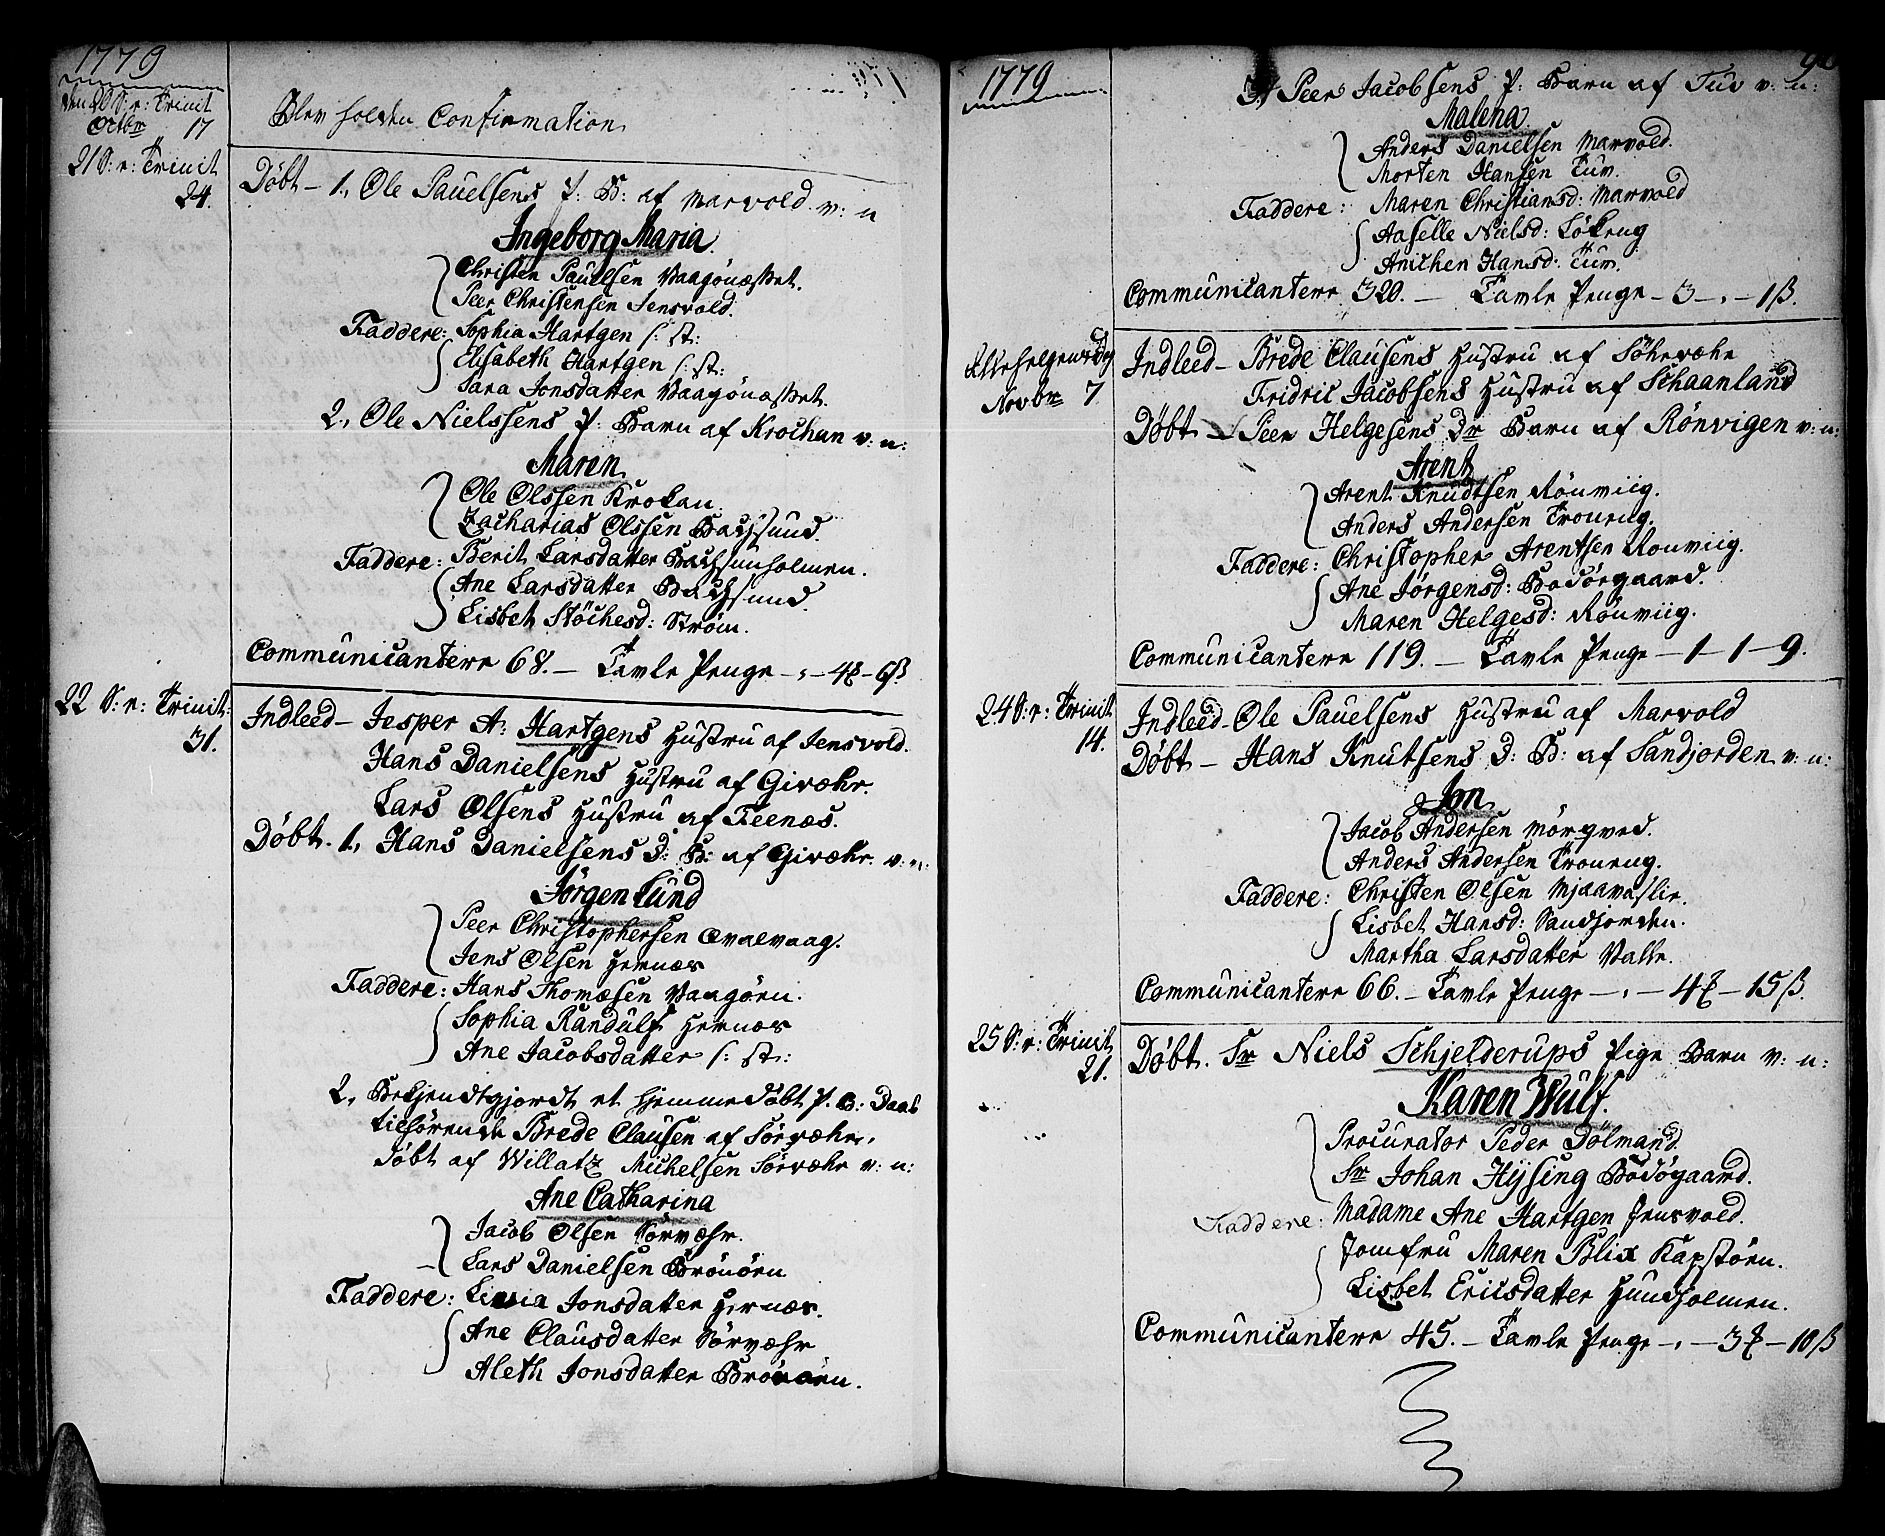 1779
den 20 S: p: Trinit
Octbr 17
Blev holden Confirmation
21 S: p: Trinit
24.
Døbt – 1, Ole Pauelsens P: B: af Marvold v: n
Ingeborg Maria.
Christen Pauelsen Vaagönæsset.
Peer Christensen Jensvold.
Faddere: Sophia Hartgen s: st:
Elisabeth Hartgen s: st:
Sara Jonsdatter Vaagönæsset.
2, Ole Nielssens P: Barn af Krochan v: n:
Maren
Ole Olssen Krokan
Zacharias Olssen Bachsund.
Faddere: Berit Larsdatter Bachsunholmen.
Ane Larsdatter Bachsund.
Lisbet Stöchesd: Ström.
Communicantere 68. – Tavle Penge – , – 4 – 6 ß
22 S: p: Trinit:
31.
Indleed – Jesper A: Hartgens Hustru af Jensvold.
Hans Danielsens Hustru af Givæhr.
Lars Olsens Hustru af Feenæs.
Døbt. 1, Hans Danielsens D: B: af Givæhr v: n:
Jörgen Lund
Peer Christophersen Qvalvaag.
Jens Olsen Hernæs
Faddere: Hans Thomæsen Vaagöen.
Sophia Randulf Hernæs
Ane Jacobsdatter s: st:
2, Bekjendtgjordt et hjemmedöbt P. B: Daab
tilhörende Brede Clausen af Sörvæhr,
döbt af Willatz Michelsen Sörvæhr v: n:
Ane Catharina
Jacob Olsen Sörvæhr.
Lars Danielsen Brönöen
Faddere: Jonsdatter Hernæs.
Ane Clausdatter Sörvæhr
Aleth Jonsdatter Brönöen.
1779
3, Peer Jacobsens P: Barn af Tuv v: n:
Malena
Anders Danielsen Marvold.
Morten Hansen Tuv.
Faddere: Maren Christiansd: Marvold
Aaselle Nielsd: Lökeng
Anichen Hansd: Tuv.
Communicantere 320. – Tavle Penge – 3 – , – 1 ß.
Allehelgensdag
Novbr 7
Indleed – Brede Clausens Hustru af Sörvæhr
Fridric Jacobsens Hustru af Schaanland
Döbt – Peer Helgesens Dr Barn af Rönvigen v: n:
Arent
Arent Knudtsen Rönviig.
Anders Andersen Troneng.
Faddere: Christopher Arentsen Rönviig.
Ane Jörgensd: Bodörgaard.
Maren Helgesd: Rönviig.
Communicantere 119. – Tavle Penge – 1 – 1 – 9.
24 S: p: Trinit
14.
Indleed – Ole Pauelsens Hustru af Marvold
Döbt – Hans Knutsens D: B: af Sandjorden v: n:
Jon
Jacob Andersen Mörqved.
Anders Andersen Troneng.
Faddere: Christen Olsen Mjaavaslie.
Lisbet Hansd: Sandjorden.
Martha Larsdatter Valle.
Communicantere 66. – Tavle Penge – , – 4 – 15 ß.
25 S: p: Trinit
21.
Döbt. Sr Niels Schjelderups Pige Barn v: n:
Karen Wulf.
Procurator Peder Dölmand.
Sr Johan Hysing Bodögaard.
Faddere: Madame Ane Hartgen Jensvold.
Jomfru Maren Blix Kapstöen.
Lisbet Ericsdatter Hundholmen.
Communicantere 45. – Tavle Penge – , – 3 – 10 ß